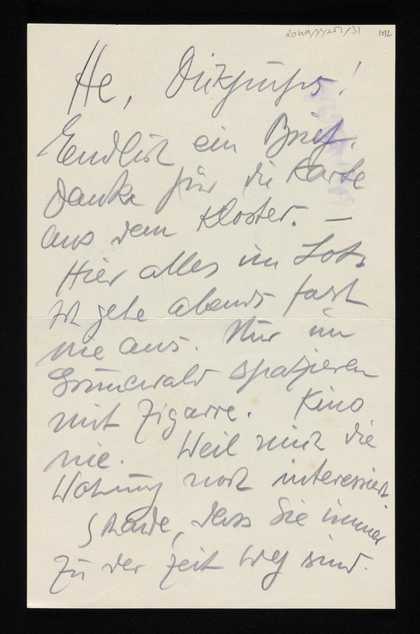 He,
Endlich ein Brief.
Danke für die Karte
aus dem Kloster. —
Hier alles im Lot.
Ich gehe abends fast
nie aus. Nur im
Grunewald spazieren
mit Zigarre. Kino
nie. Weil mich die
Wohnung noch interessiert
Schade, dass Sie immer
zu der Zeit weg sind.